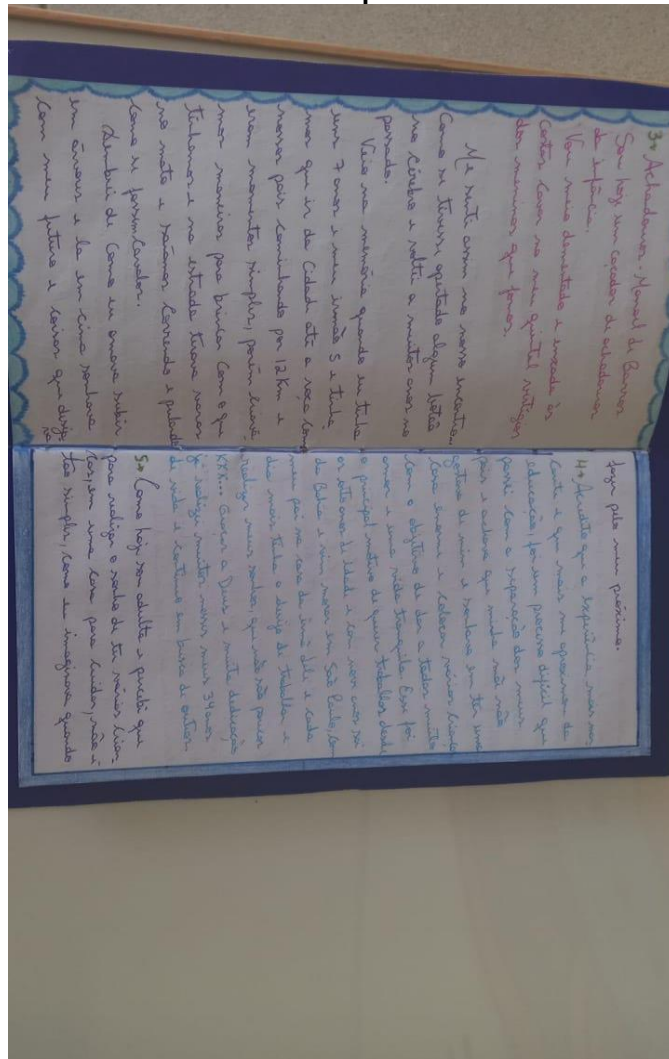 3• Achadouros - Manoel de Barros
Sou hoje um caçador de achadouros
da infância.
Vou meio dementado e enxada às
costas cavar no meu quintal vestígios
dos meninos que fomos.
Me senti assim no nosso encontro...
Como se tivesse apertado algum botão
no cérebro e voltei a muitos anos no
passado.
Veio na memória quando eu tinha
uns 7 anos e meu irmão 5 e tinha
mos que ir da Cidade até a roça com
nossos pais caminhando por 12 Km e
eram momentos simples, porém
mos maneiras para brincar com o que
tinhamos e na estrada
no mato e saíamos correndo e pulando
como se fossem cavalos.
Lembrei de como eu amava subir
em árvores e la em cima sonhava
com meu futuro e coisas que
fazer pelo meu próximo.
4• Acredito que a experiência mais
e que mais me aproximou da
educação, foi um processo difícil que
passei com a separação dos meus
pais e achava que minha mãe não
gostava de mim e sonhava em ter uma
casa enorme e colocar várias
com o objetivo de dar a todos muito
amor e uma vida tranquila. Esse foi
o principal motivo de querer trabalhar desde
os oito anos de idade e com nove anos saí
da Bahia e vim morar em São Paulo, com
meu pai na casa da irmã dele e cada
dia mais tinha o desejo de trabalhar e
realizar meus sonhos, que não são poucos
KKK... Graças a Deus e muita dedicação
já realizei muitos nesses meus 34 anos
de vida e continuo em busca de outros.
5• Como hoje sou adulta e percebi que
para realizar o sonho de ter várias
em uma casa para cuidar, não é
tão simples, como eu imaginava quando